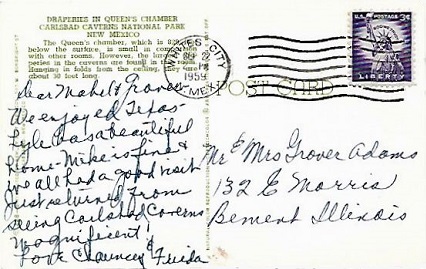 DRAPERIES IN QUEEN'S CHAMBER
CARLSBAD CAVERNS NATIONAL PARK
NEW MEXICO
The Queen's chamber, which is
below the surface, is small in comparison
with other rooms. However, the largest
peries in the caverns are found in
Hanging in folds from the ceiling, they are
about 30 foot long.
Dear Mabel & Grover
We enjoyed Texas
Lyle has a beautiful
home. Mike is fine &
we all had a good visit
Just returned from
seeing Carlsbad Caverns
Magnificent!
Love Chauncey & Frieda
WHITES CITY
PM
1959
N. MEX.
U.S. POSTAGE 3¢
LIBERTY
POST CARD
Mr & Mrs Grover Adams
132 E Morris
Bement Illinois